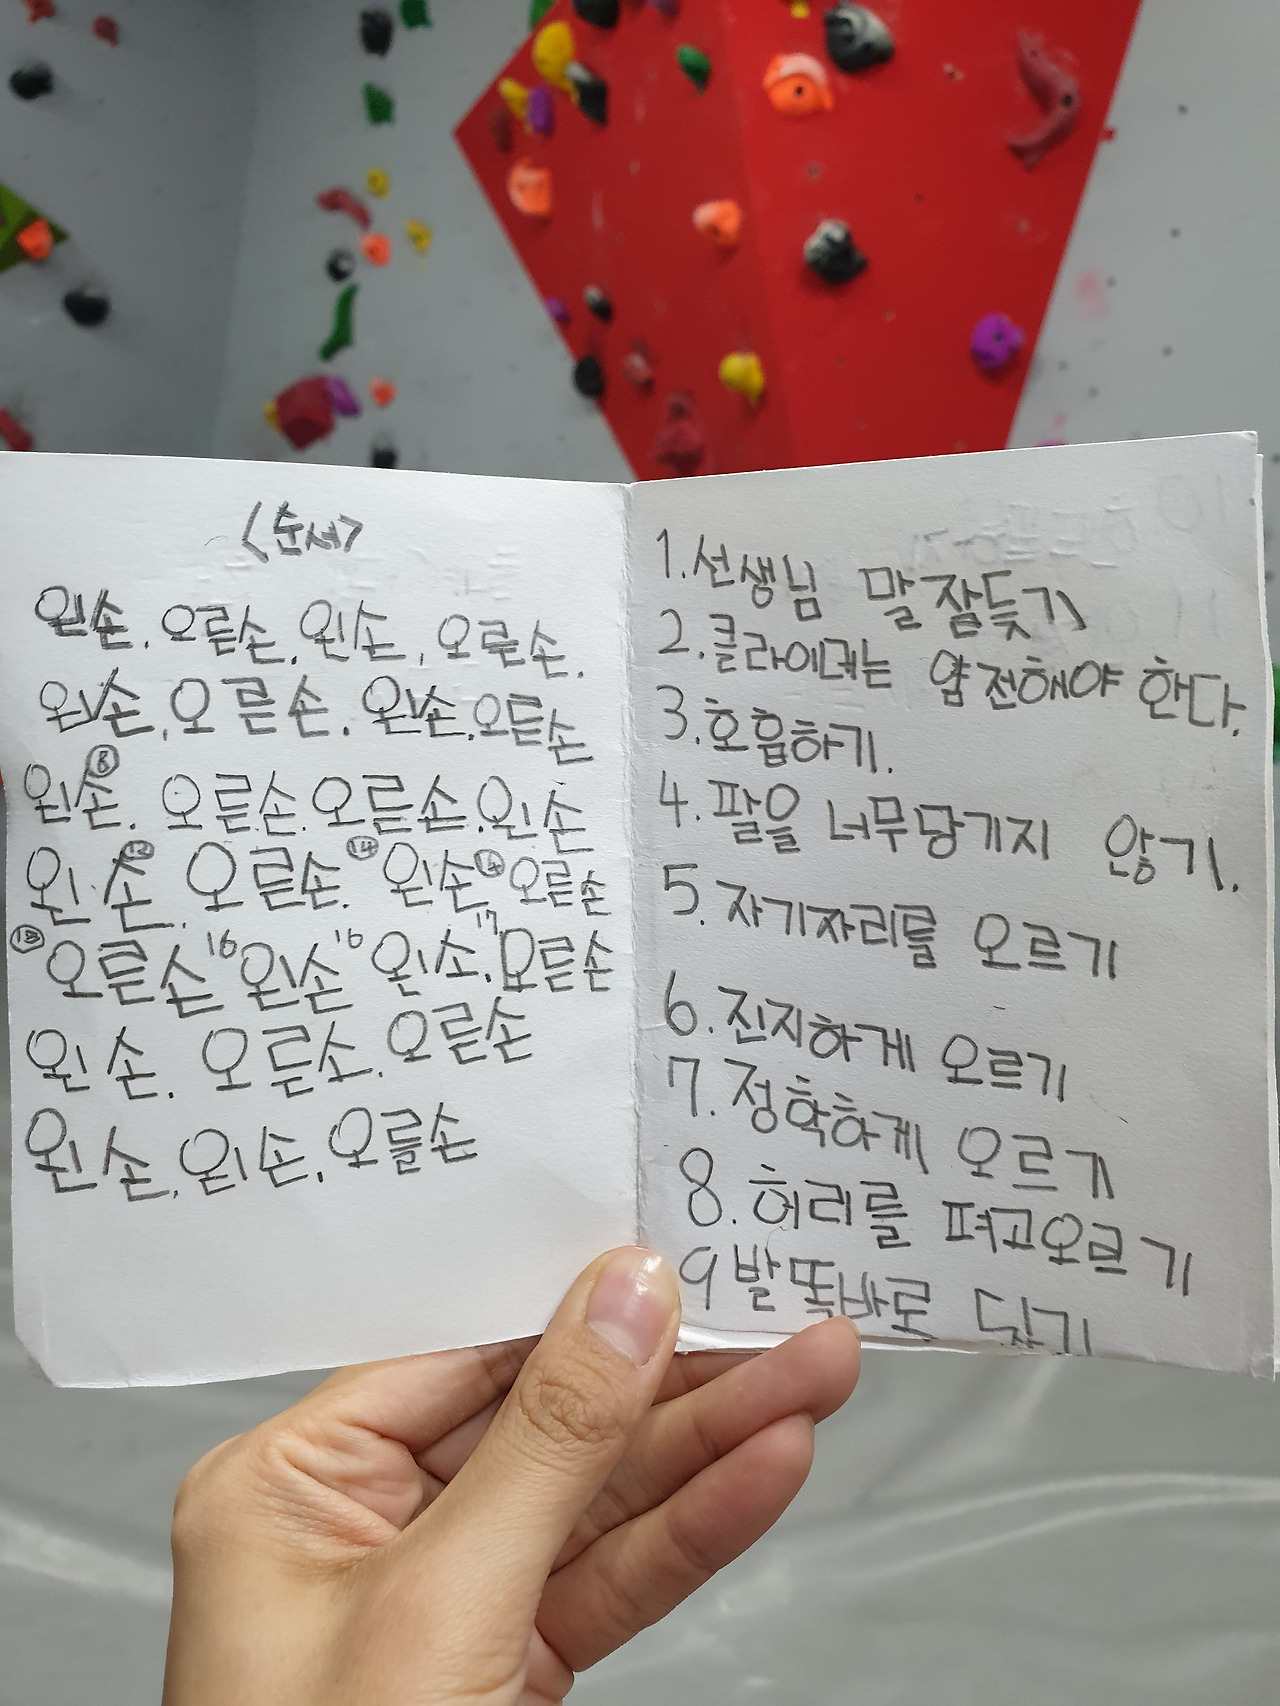 <순서>
왼손, 오륻손, 왼손, 오륻손,
왼손, 오륻손, 왼손, 오륻손
왼손⑧, 오륻손, 오륻손, 왼손
왼손⑫, 오륻손, ⑭ 왼손 ⑭ 오륻손
오륻손 16 왼손 16 왼소, 17 오륻손
왼손, 오륻소, 오륻손
왼손, 왼손, 오를손
1. 선생님 말 잘듲기
2. 클라이머는 얌전해야 한다.
3. 호흡하기.
4. 팔을 너무당기지 않기.
5. 자기자리를 오르기
6. 진지하게 오르기
7. 정확하게 오르기
8. 허리를 펴고오르기
9 발 똑바로 딛기